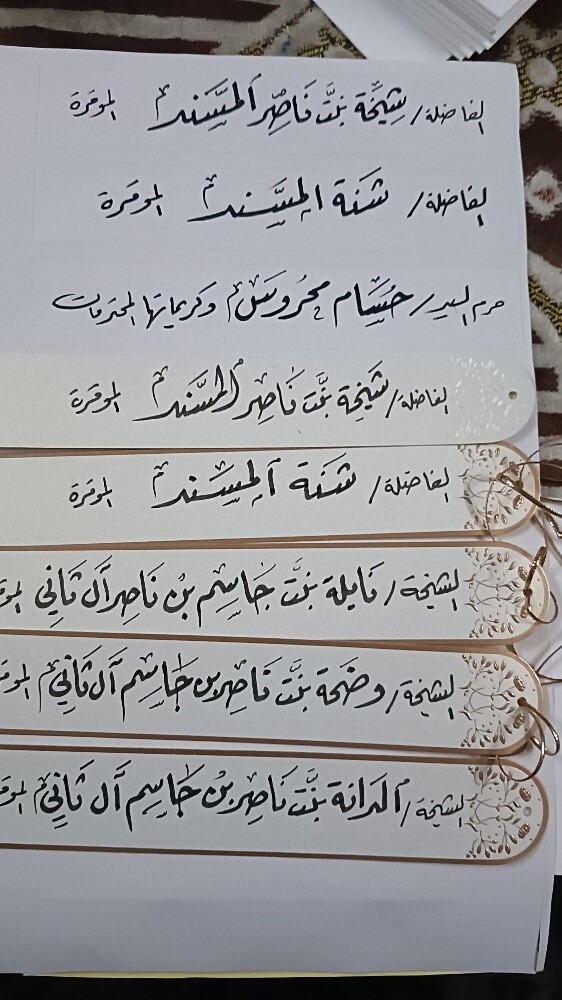 الفاضلة/ شيخة بنت ناصر المسند الموقرة
الفاضلة/ شنة المسند الموقرة
حرم السيد/ حسام محروس وكريماتها المحترمات
الفاضلة/ شيخة بنت ناصر المسند الموقرة
الفاضلة/ شنة المسند الموقرة
الشيخة/ نايلة بنت جاسم بن ناصر آل ثاني
الشيخة/ وضحة بنت ناصر بن جاسم آل ثاني
الشيخة/ الدانة بنت ناصر بن جاسم آل ثاني